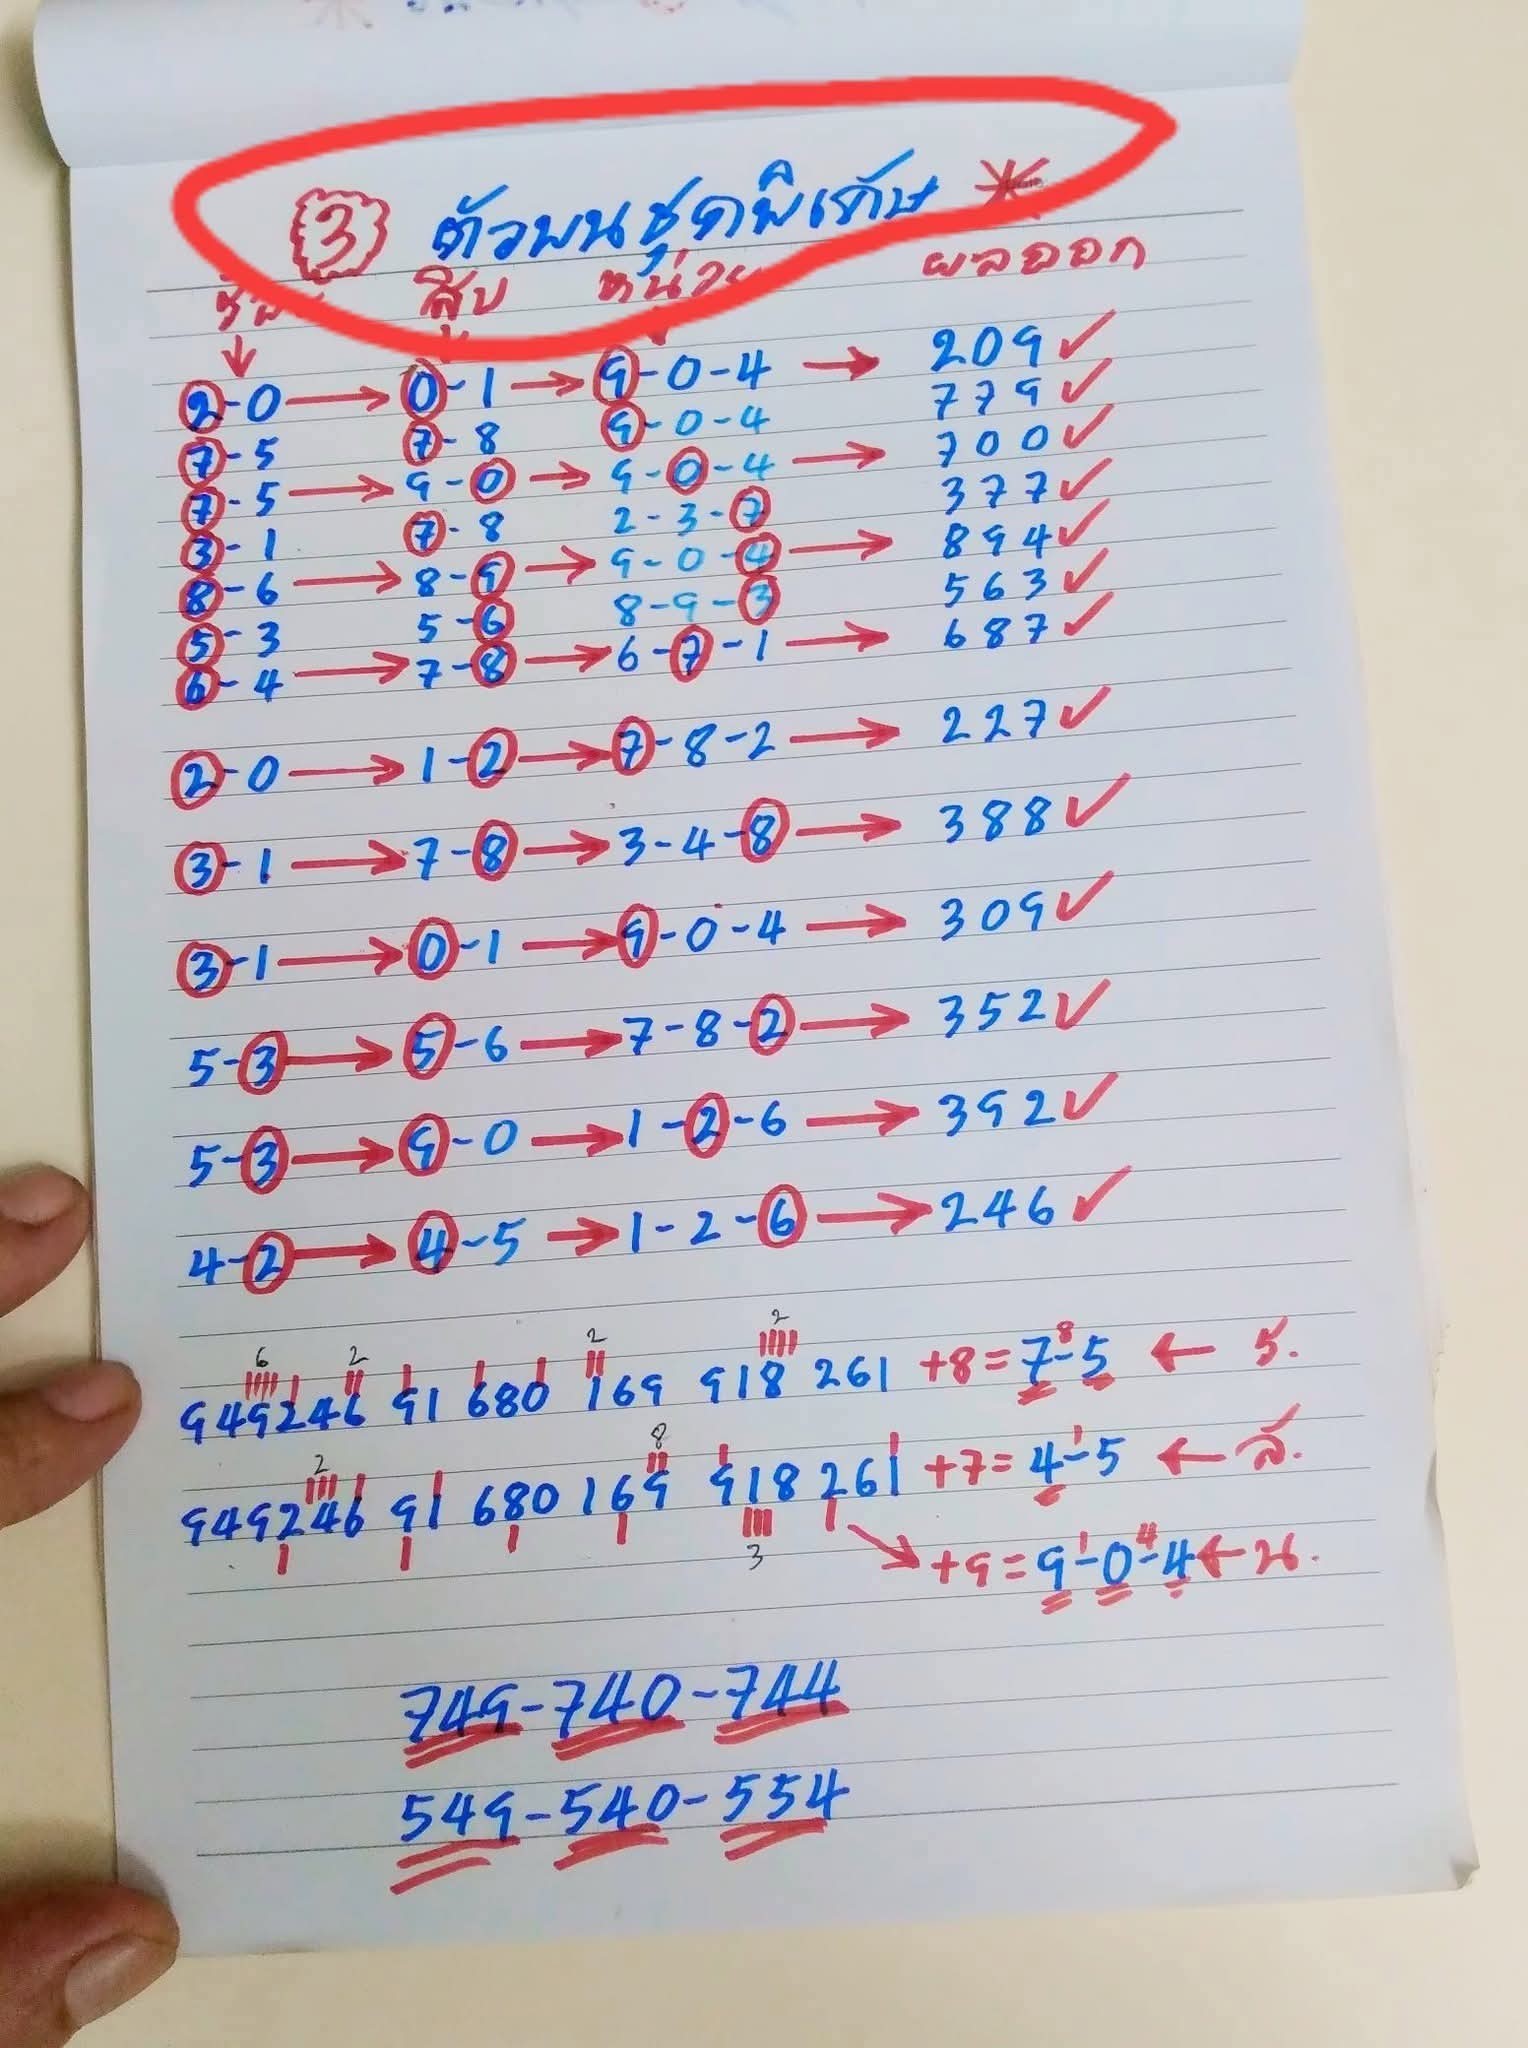 3 ตัวบนชุดพิเศษ
สิบ หน่วย ผลออก
2-0 0-1 9-0-4 209
7-5 7-8 9-0-4 779
7-5 9-0 9-0-4 700
3-1 7-8 2-3-7 377
8-6 8-9 9-0-4 894
5-3 5-6 8-9-3 563
6-4 7-8 6-7-1 687
2-0 1-2 7-8-2 227
3-1 7-8 3-4-8 388
3-1 0-1 9-0-4 309
5-3 5-6 7-8-2 352
5-3 9-0 1-2-6 392
4-2 4-5 1-2-6 246
6 2 2 2
949246 91 680 169 918 261 +8=7-8-5 ร.
2 8
949246 91 680 169 918 261 +7=4-1-5 ส.
3 +9=9-1-0-4-4 น.
749-740-744
549-540-554